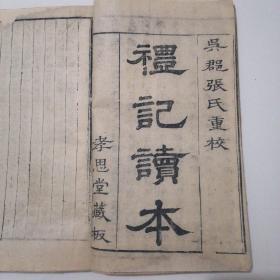 吳郡張氏重校
禮記讀本
孝思堂藏板